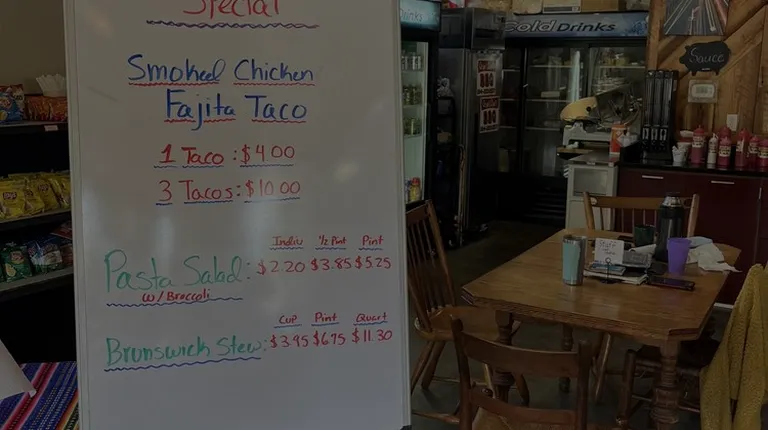 Special
Smoked Chicken
Fajita Taco
1 Taco : $4.00
3 Tacos : $10.00
Indiv ½ Pint Pint
Pasta Salad : $2.20 $3.85 $5.25
w/ Broccoli
Cup Pint Quart
Brunswick Stew : $3.95 $6.75 $11.30
Cold Drinks
Sauce